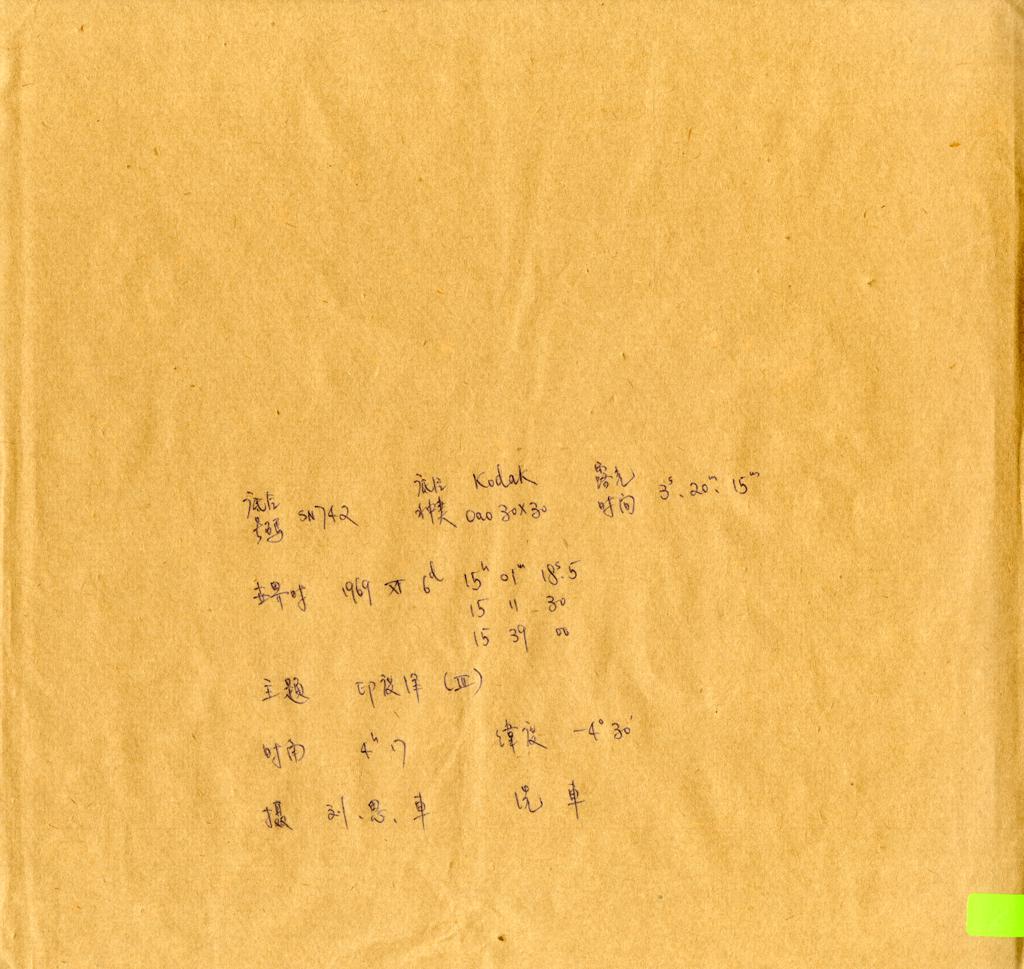 底片号码 SN742 底片种类 Kodak 0a0 30×30 露光时间 3ˢ. 20ᵐ. 15ᵐ
世界时 1969 XI 6ᵈ 15ʰ 01ᵐ 18ˢ.5
15 11 30
15 39 00
主题 (III)
时角 4ʰ 17 纬度 -4° 30′
摄 刘.思.车 洗 车